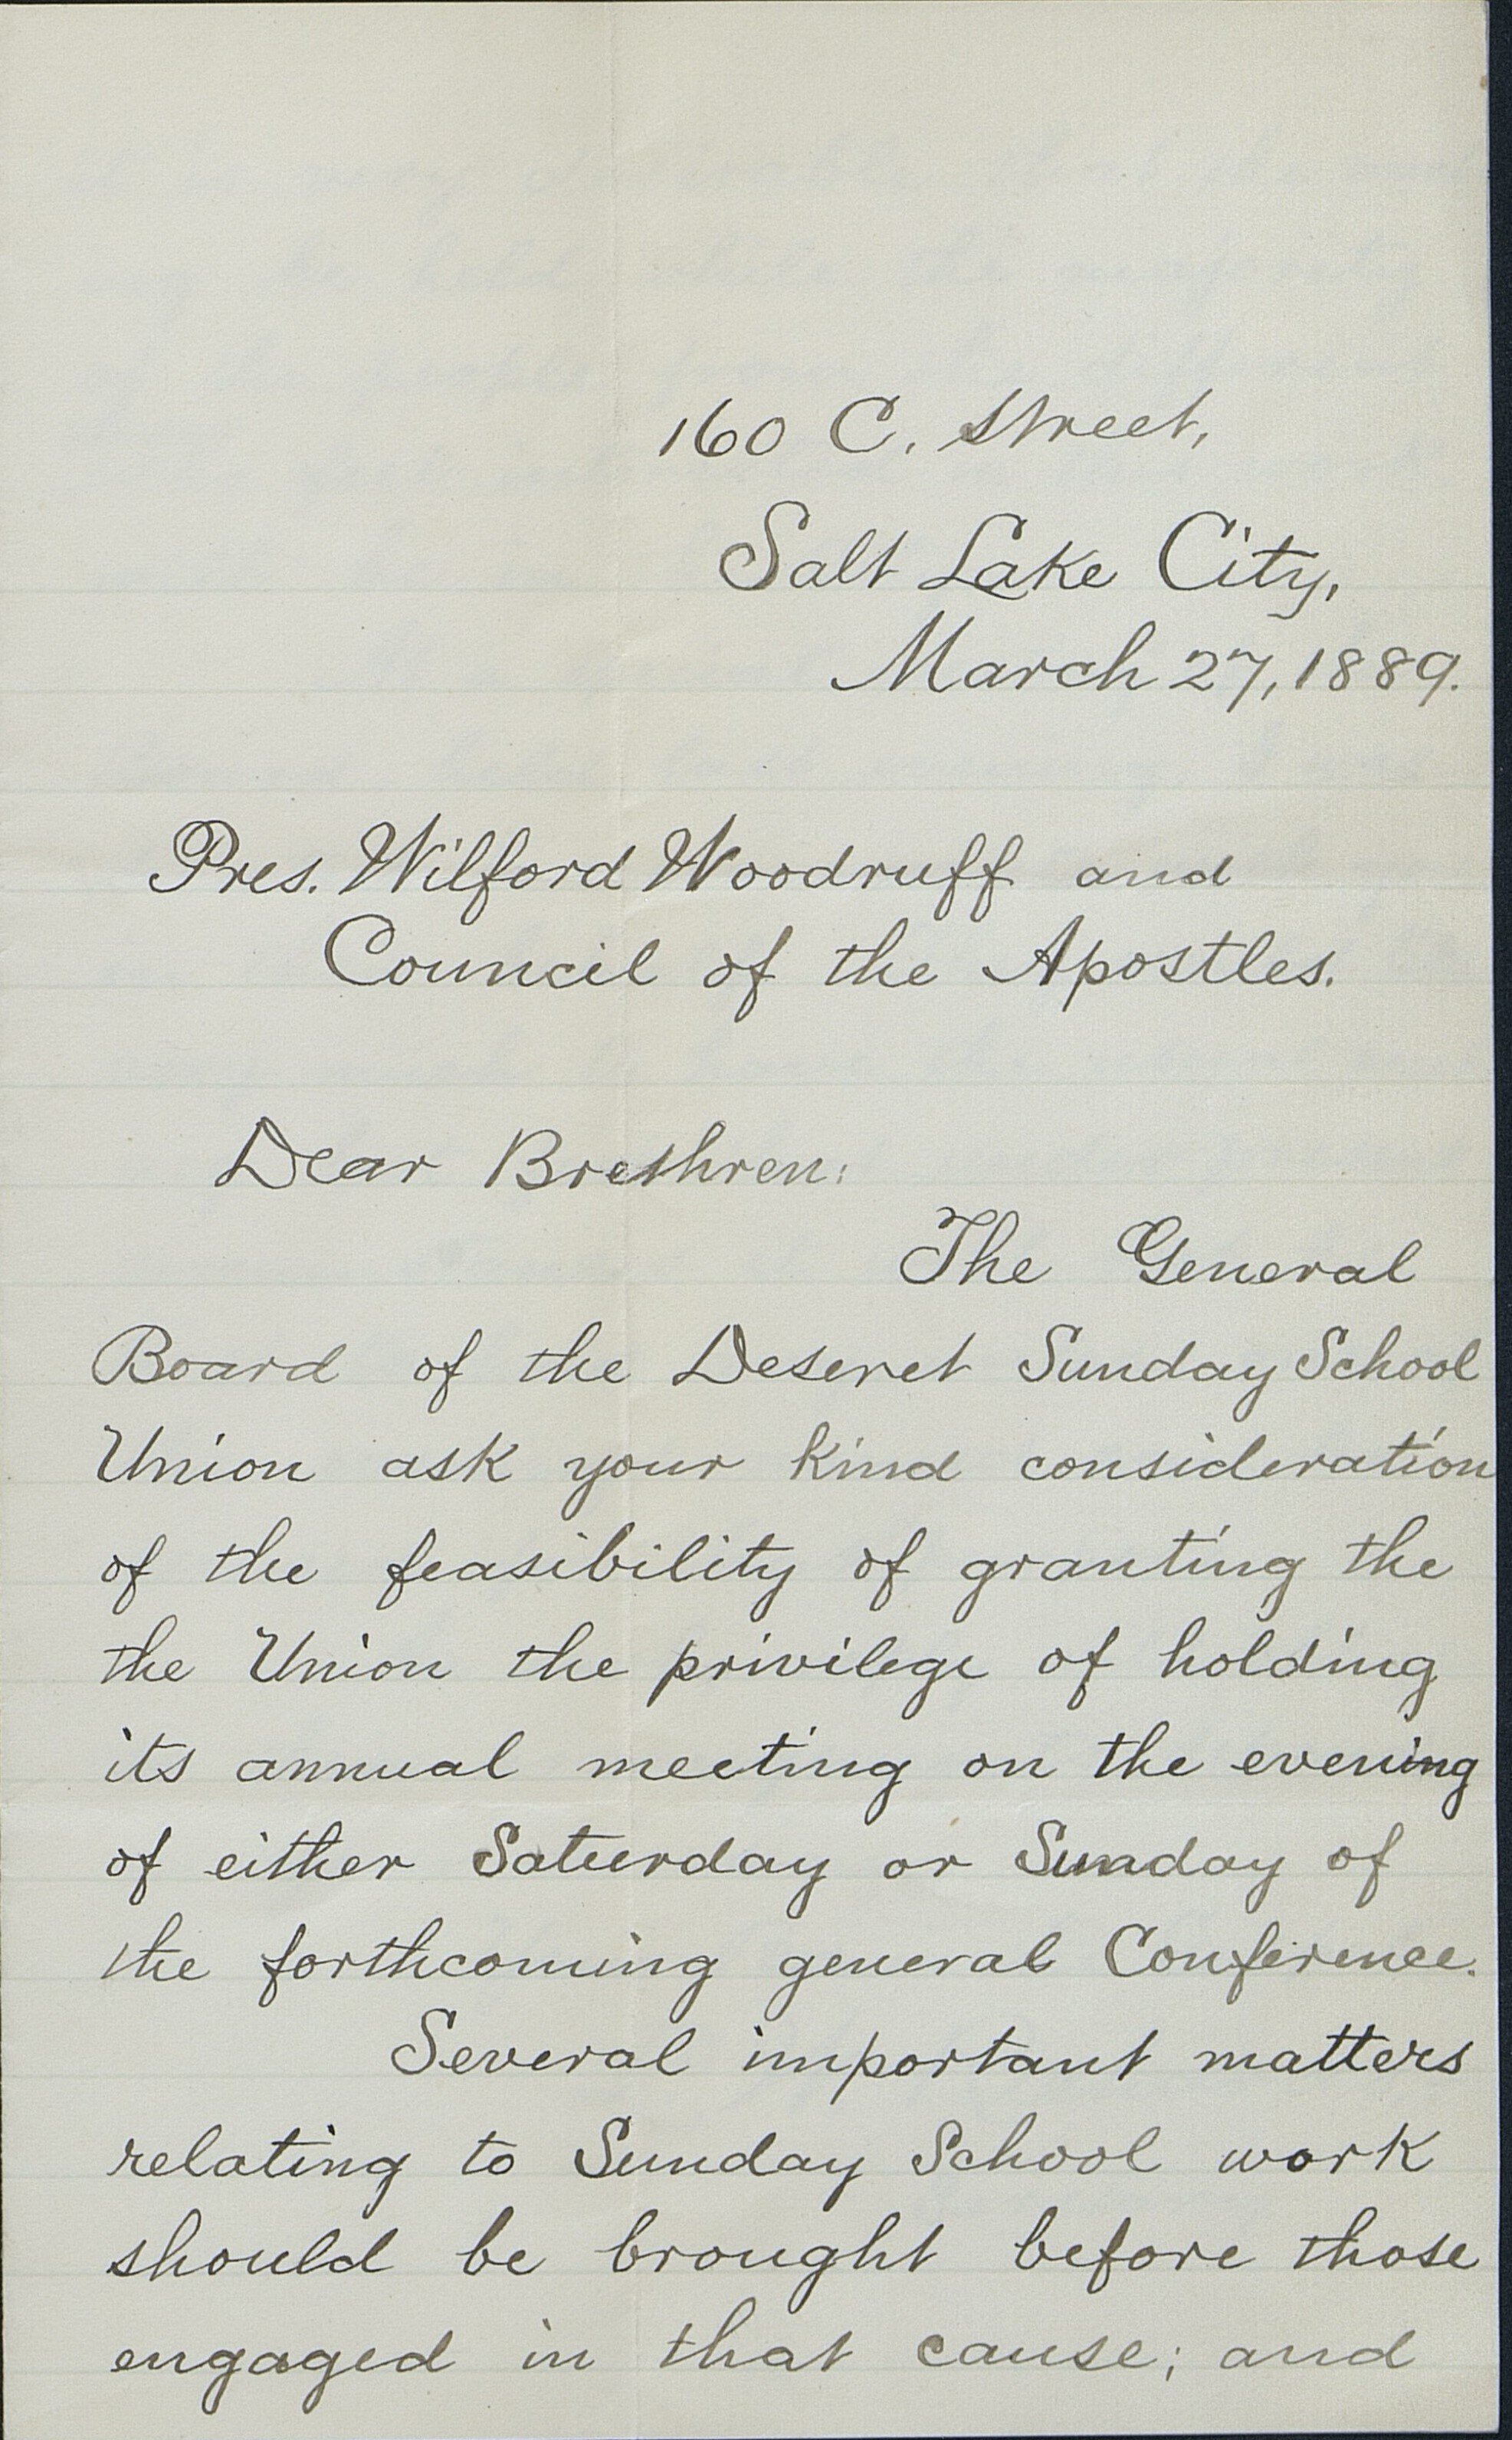 160 C. Street,
Salt Lake City,
March 27, 1889.
Pres. Wilford Woodruff and
Council of the Apostles.
Dear Brethren:
The General
Board of the Deseret Sunday School
Union ask your kind consideration
of the feasibility of granting the
the Union the privilege of holding
its annual meeting on the evening
of either Saturday or Sunday of
the forthcoming general Conference.
Several important matters
relating to Sunday School work
should be brought before those
engaged in that cause; and